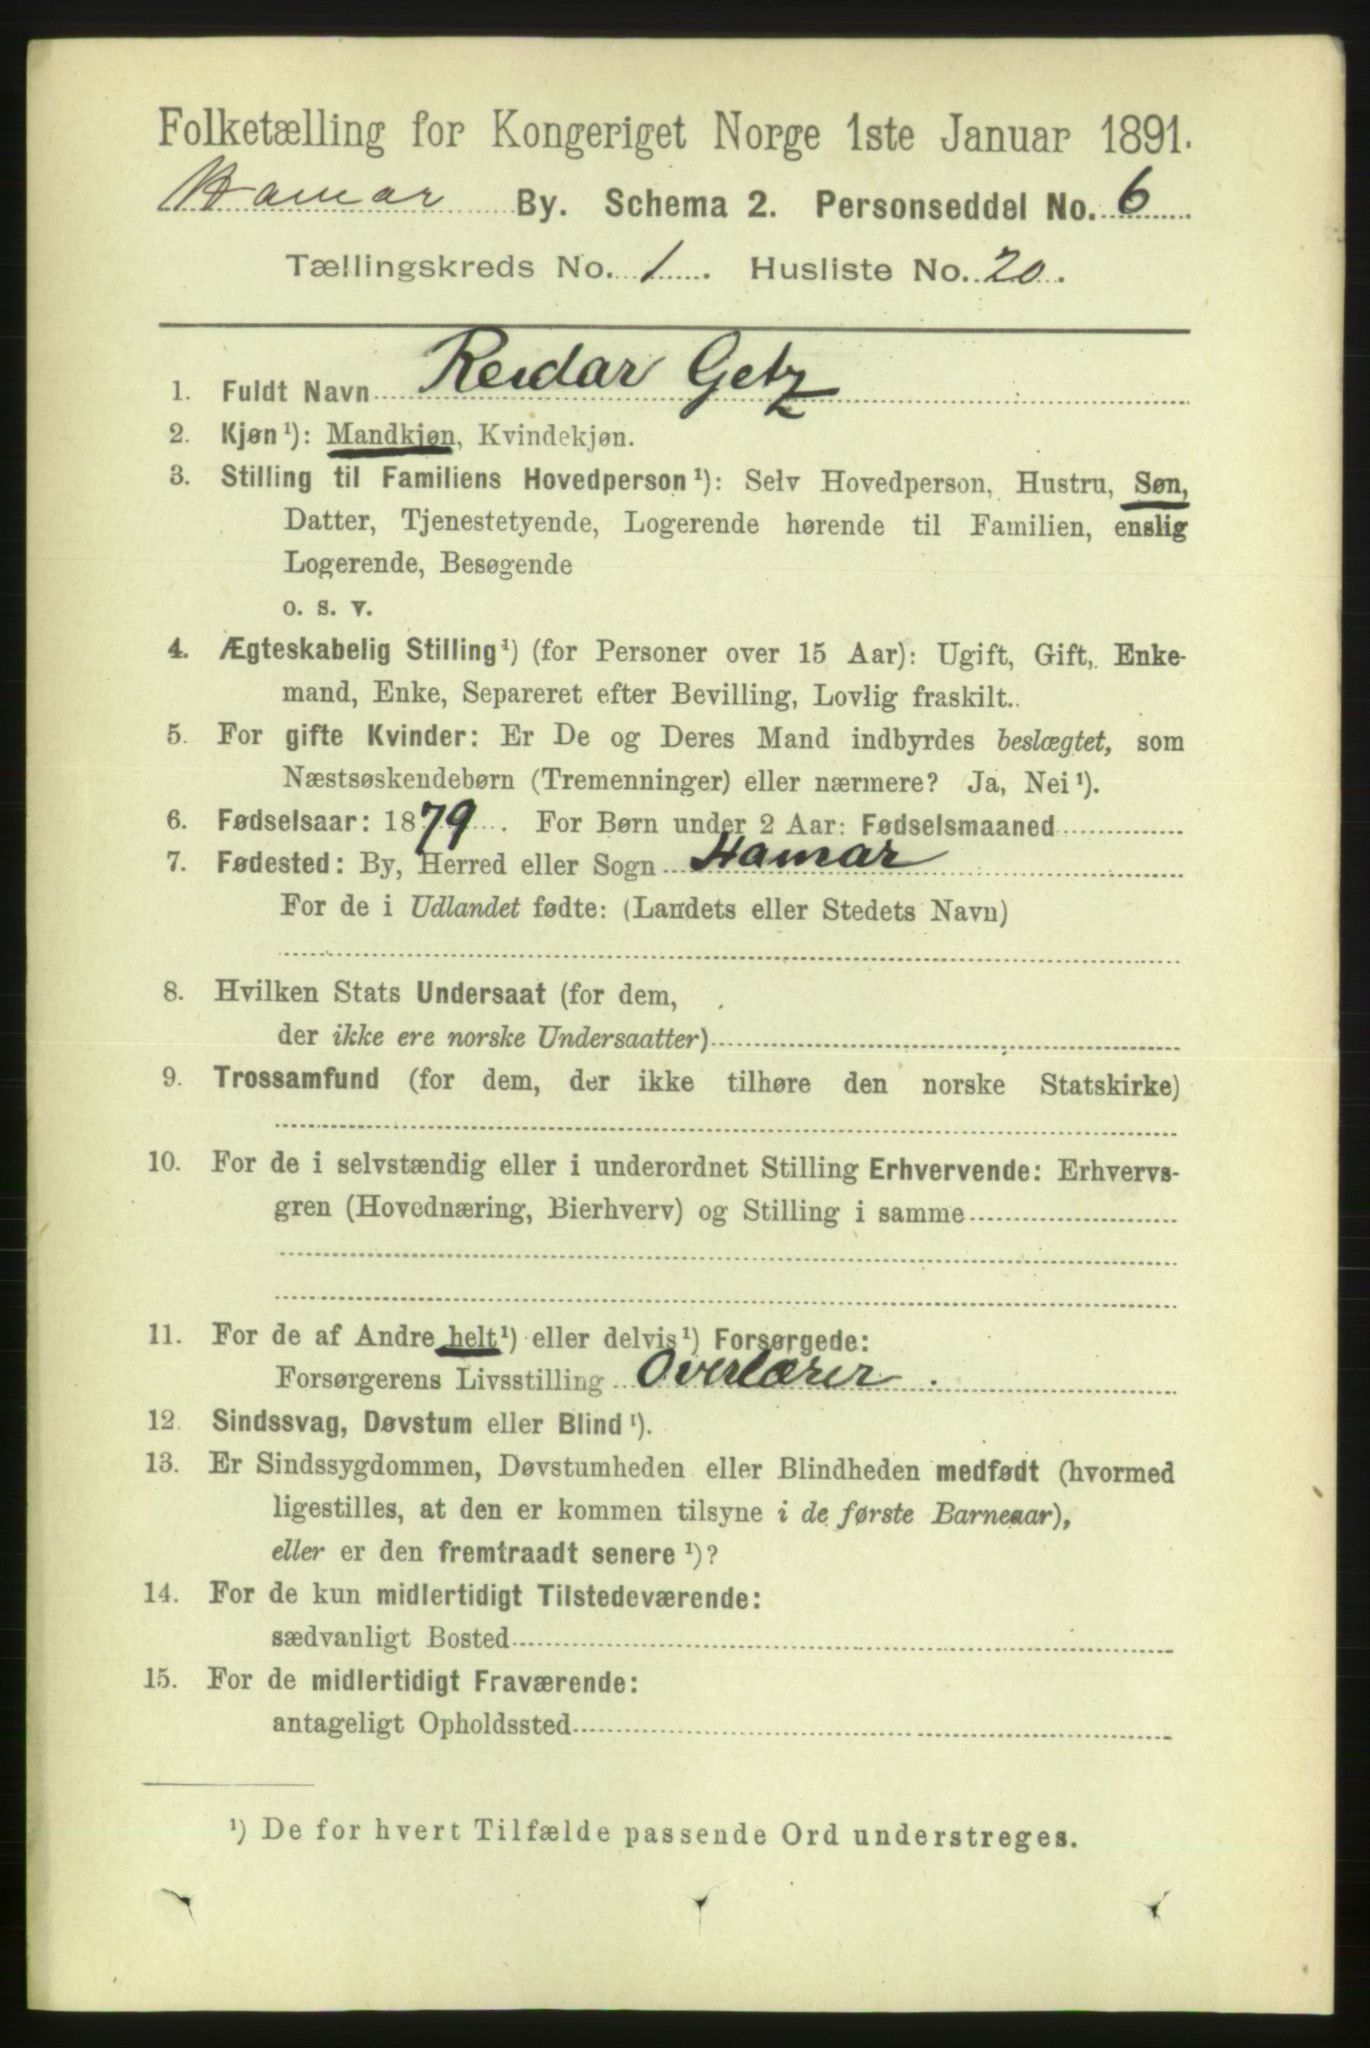 Folketælling for Kongeriget Norge 1ste Januar 1891.
Hamar By. Schema 2. Personseddel No. 6
Tællingskreds No. 1. Husliste No. 20.
1. Fuldt Navn Reidar Getz
2. Kjøn¹): Mandkjøn, Kvindekjøn.
3. Stilling til Familiens Hovedperson¹): Selv Hovedperson, Hustru, Søn,
Datter, Tjenestetyende, Logerende hørende til Familien, enslig
Logerende, Besøgende
o. s. v.
4. Ægteskabelig Stilling¹) (for Personer over 15 Aar): Ugift, Gift, Enke-
mand, Enke, Separeret efter Bevilling, Lovlig fraskilt.
5. For gifte Kvinder: Er De og Deres Mand indbyrdes beslægtet, som
Næstsøskendebørn (Tremenninger) eller nærmere? Ja, Nei¹).
6. Fødselsaar: 1879. For Børn under 2 Aar: Fødselsmaaned
7. Fødested: By, Herred eller Sogn Hamar
For de i Udlandet fødte: (Landets eller Stedets Navn)
8. Hvilken Stats Undersaat (for dem,
der ikke ere norske Undersaatter)
9. Trossamfund (for dem, der ikke tilhøre den norske Statskirke)
10. For de i selvstændig eller i underordnet Stilling Erhvervende: Erhvervs-
gren (Hovednæring, Bierhverv) og Stilling i samme
11. For de af Andre helt¹) eller delvis¹) Forsørgede:
Forsørgerens Livsstilling Overlærer.
12. Sindssvag, Døvstum eller Blind¹).
13. Er Sindssygdommen, Døvstumheden eller Blindheden medfødt (hvormed
ligestilles, at den er kommen tilsyne i de første Barneaar),
eller er den fremtraadt senere¹)?
14. For de kun midlertidigt Tilstedeværende:
sædvanligt Bosted
15. For de midlertidigt Fraværende:
antageligt Opholdssted
¹) De for hvert Tilfælde passende Ord understreges.